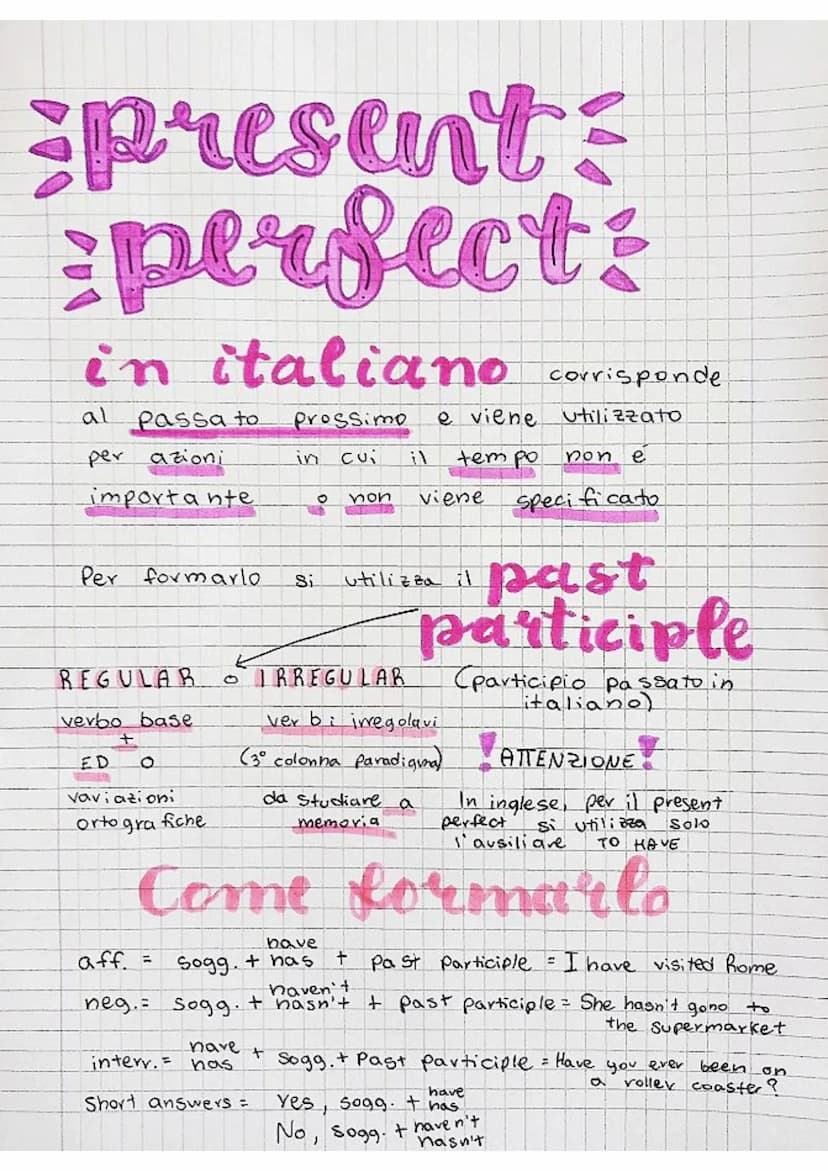 present
perfect
in italiano corrisponde
al passato prossimo e viene utilizzato
per azioni in cui il tempo non é
importante o non viene specificato
Per formarlo si utilizza il past
participle
REGULAR o IRREGULAR (participio passato in
italiano)
verbo base
+
ED O
variazioni
ortografiche
verbi irregolari
(3° colonna paradigma)
da studiare a
memoria
! ATTENZIONE !
In inglese, per il present
perfect si utilizza solo
l'ausiliare TO HAVE
Come formarlo
have
aff. = sogg. + has + past participle = I have visited Rome
haven't
neg. = sogg. + hasn't + past participle = She hasn't gono to
the supermarket
have
interr. = has + sogg. + Past participle = Have you ever been on
a roller coaster?
have
Short answers = Yes, sogg. + has
No, sogg. + haven't
hasn't